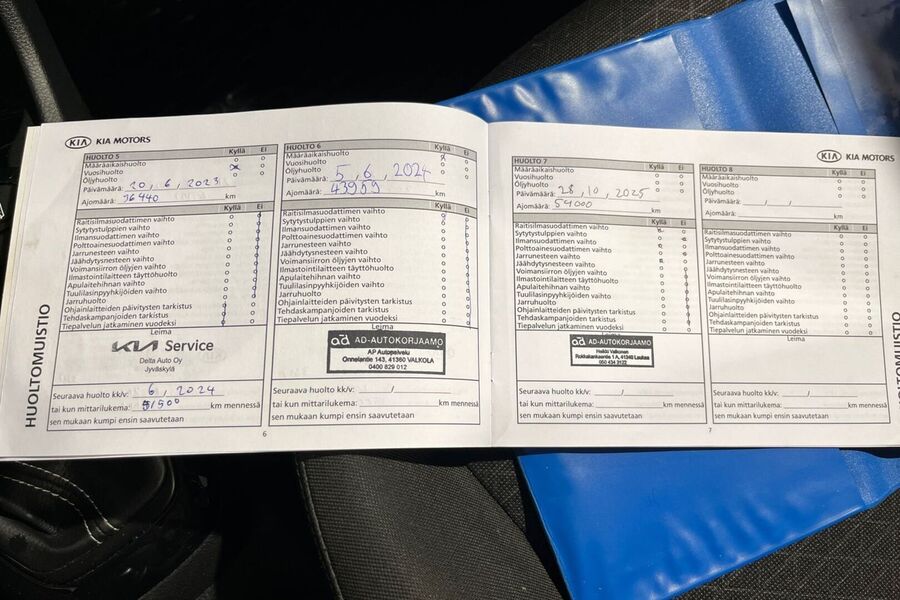 KIA KIA MOTORS
HUOLTO 5 Kyllä Ei
Määräaikaishuolto
Vuosihuolto
Öljyhuolto
Päivämäärä: 20, 6, 2023
Ajomäärä: 36440 km
Kyllä Ei
Raitisilmasuodattimen vaihto
Sytytystulppien vaihto
Ilmansuodattimen vaihto
Polttoainesuodattimen vaihto
Jarrunesteen vaihto
Jäähdytysnesteen vaihto
Voimansiirron öljyjen vaihto
Ilmastointilaitteen täyttöhuolto
Apulaitehihnan vaihto
Tuulilasinpyyhkijöiden vaihto
Jarruhuolto
Ohjainlaitteiden päivitysten tarkistus
Tehdaskampanjoiden tarkistus
Tiepalvelun jatkaminen vuodeksi
Leima
KIA Service
Delta Auto Oy
Jyväskylä
Seuraava huolto kk/v: 6, 2024
tai kun mittarilukema: 51500 km mennessä
sen mukaan kumpi ensin saavutetaan
HUOLTOMUISTIO
6
HUOLTO 6 Kyllä Ei
Määräaikaishuolto
Vuosihuolto
Öljyhuolto
Päivämäärä: 5, 6, 2024
Ajomäärä: 43959 km
Kyllä Ei
Raitisilmasuodattimen vaihto
Sytytystulppien vaihto
Ilmansuodattimen vaihto
Polttoainesuodattimen vaihto
Jarrunesteen vaihto
Jäähdytysnesteen vaihto
Voimansiirron öljyjen vaihto
Ilmastointilaitteen täyttöhuolto
Apulaitehihnan vaihto
Tuulilasinpyyhkijöiden vaihto
Jarruhuolto
Ohjainlaitteiden päivitysten tarkistus
Tehdaskampanjoiden tarkistus
Tiepalvelun jatkaminen vuodeksi
Leima
ad AD-AUTOKORJAAMO
AP Autopalvelu
Onnelantie 143, 41360 VALKOLA
0400 829 012
Seuraava huolto kk/v: /
tai kun mittarilukema: km mennessä
sen mukaan kumpi ensin saavutetaan
HUOLTO 7 Kyllä Ei
Määräaikaishuolto
Vuosihuolto
Öljyhuolto
Päivämäärä: 28, 10, 2025
Ajomäärä: 54000 km
Kyllä Ei
Raitisilmasuodattimen vaihto
Sytytystulppien vaihto
Ilmansuodattimen vaihto
Polttoainesuodattimen vaihto
Jarrunesteen vaihto
Jäähdytysnesteen vaihto
Voimansiirron öljyjen vaihto
Ilmastointilaitteen täyttöhuolto
Apulaitehihnan vaihto
Tuulilasinpyyhkijöiden vaihto
Jarruhuolto
Ohjainlaitteiden päivitysten tarkistus
Tehdaskampanjoiden tarkistus
Tiepalvelun jatkaminen vuodeksi
ad AD-AUTOKORJAAMO
Heikki Valkonen
1 A, 41340 Laukaa
050 434 2122
Seuraava huolto kk/v: /
tai kun mittarilukema: km mennessä
sen mukaan kumpi ensin saavutetaan
7
KIA KIA MOTORS
HUOLTO 8 Kyllä Ei
Määräaikaishuolto
Vuosihuolto
Öljyhuolto
Päivämäärä: , ,
Ajomäärä: km
Kyllä Ei
Raitisilmasuodattimen vaihto
Sytytystulppien vaihto
Ilmansuodattimen vaihto
Polttoainesuodattimen vaihto
Jarrunesteen vaihto
Jäähdytysnesteen vaihto
Voimansiirron öljyjen vaihto
Ilmastointilaitteen täyttöhuolto
Apulaitehihnan vaihto
Tuulilasinpyyhkijöiden vaihto
Jarruhuolto
Ohjainlaitteiden päivitysten tarkistus
Tehdaskampanjoiden tarkistus
Tiepalvelun jatkaminen vuodeksi
Leima
Seuraava huolto kk/v: /
tai kun mittarilukema: km mennessä
sen mukaan kumpi ensin saavutetaan